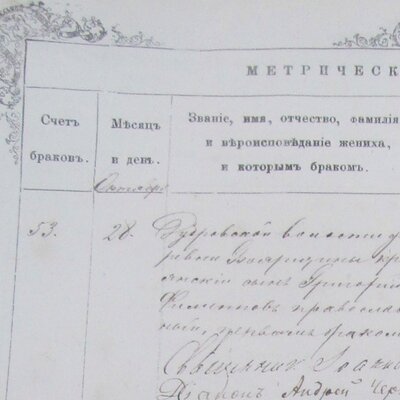 МЕТРИЧЕСК
Счетъ браковъ.
Мѣсяцъ и день.
Званіе, имя, отчество, фамилія
и вѣроисповѣданіе жениха,
и которымъ бракомъ.
Октябрь
53.
28.
волости
сынъ Григорій
православ
ный, первымъ бракомъ
Священникъ Іоанн
Діаконъ Андрей Чер